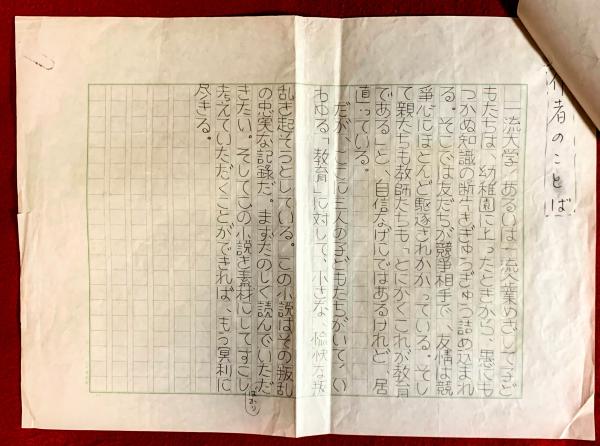 作者のことば
一流大学、あるいは一流企業めざして子ど
もたちは、幼稚園に上ったときから、愚にも
つかぬ知識の断片をぎゅうぎゅう詰め込まれ
る。そこでは友だちが競争相手で、友情は競
争心にほとんど駆逐されかかっている。そし
て親たちも教師たちも、とにかくこれが教育
である」と、自信なげにではあるけれど、居
直っている。
だが、ここに三人の子どもたちがいて、い
わゆる「教育」に対して、小さな、愉快な叛
乱を起そうとしている。この小説はその叛乱
の忠実な記録だ。まずたのしく読んでいただ
きたい。そしてこの小説を素材にしてすこし
考えていただくことができれば、もう冥利に
尽きる。